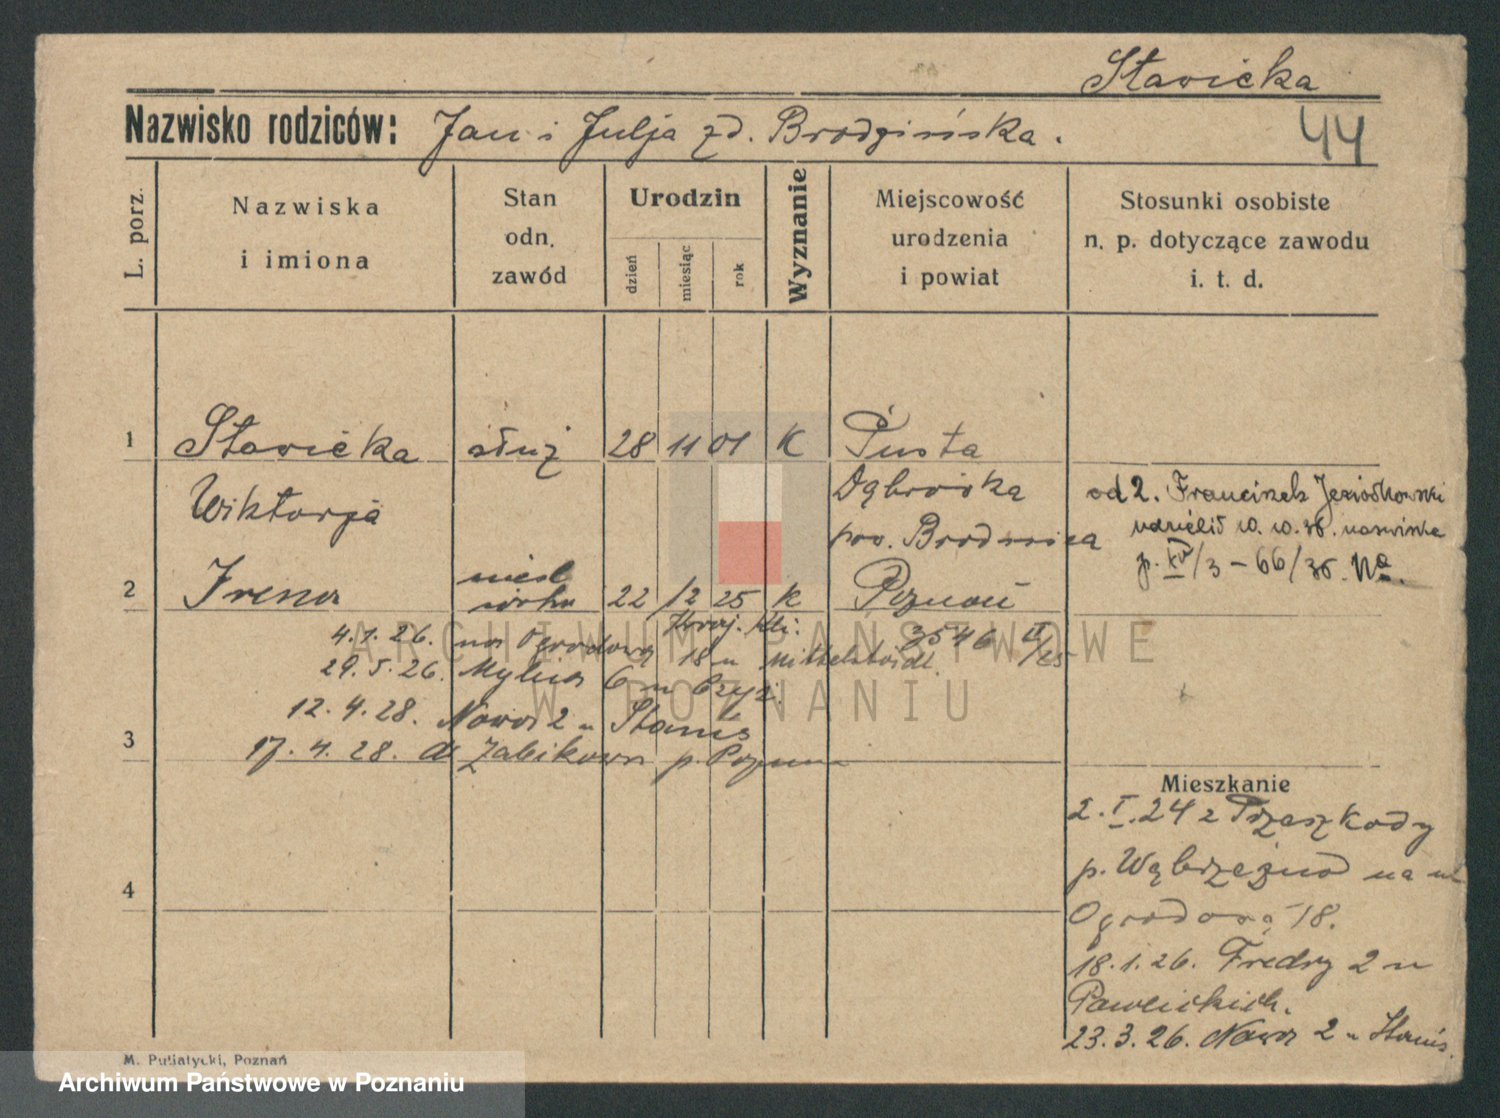 Stawicka
Nazwisko rodziców: Jan i Julja zd. Brodzińska.
44
L. porz.
Nazwiska
i imiona
Stan
odn.
zawód
Urodzin
dzień
miesiąc
rok
Wyznanie
Miejscowość
urodzenia
i powiat
Stosunki osobiste
n. p. dotyczące zawodu
i. t. d.
1 Stawicka służ 28 11 01 K Pusta
Wiktorja Dąbrówka
pow. Brodnica
od 2. Franciszek Jeziorkowski
udzielił 10. 10. 36. nazwiska
p. XV/3 - 66/36. Na.
2 Irena nieśl
córka 22 12 25 K Poznań
3546 II/25
4.1.26. na Ogrodową 18 u Mittelstädt.
29.5.26. Mylna 6 u Czyż.
12.4.28. Nowa 2 u Stanis
3
17.4.28. do Żabikowa p. Poznań
Mieszkanie
2.I.24 z Przeszkody
p. Wąbrzeźno na ul
Ogrodową 18.
18.1.26. Fredry 2 u
Pawlickich.
23.3.26. Nowa 2 u Stanis.
4
M. Putiatycki, Poznań
ARCHIWUM PAŃSTWOWE
W POZNANIU
Archiwum Państwowe w Poznaniu